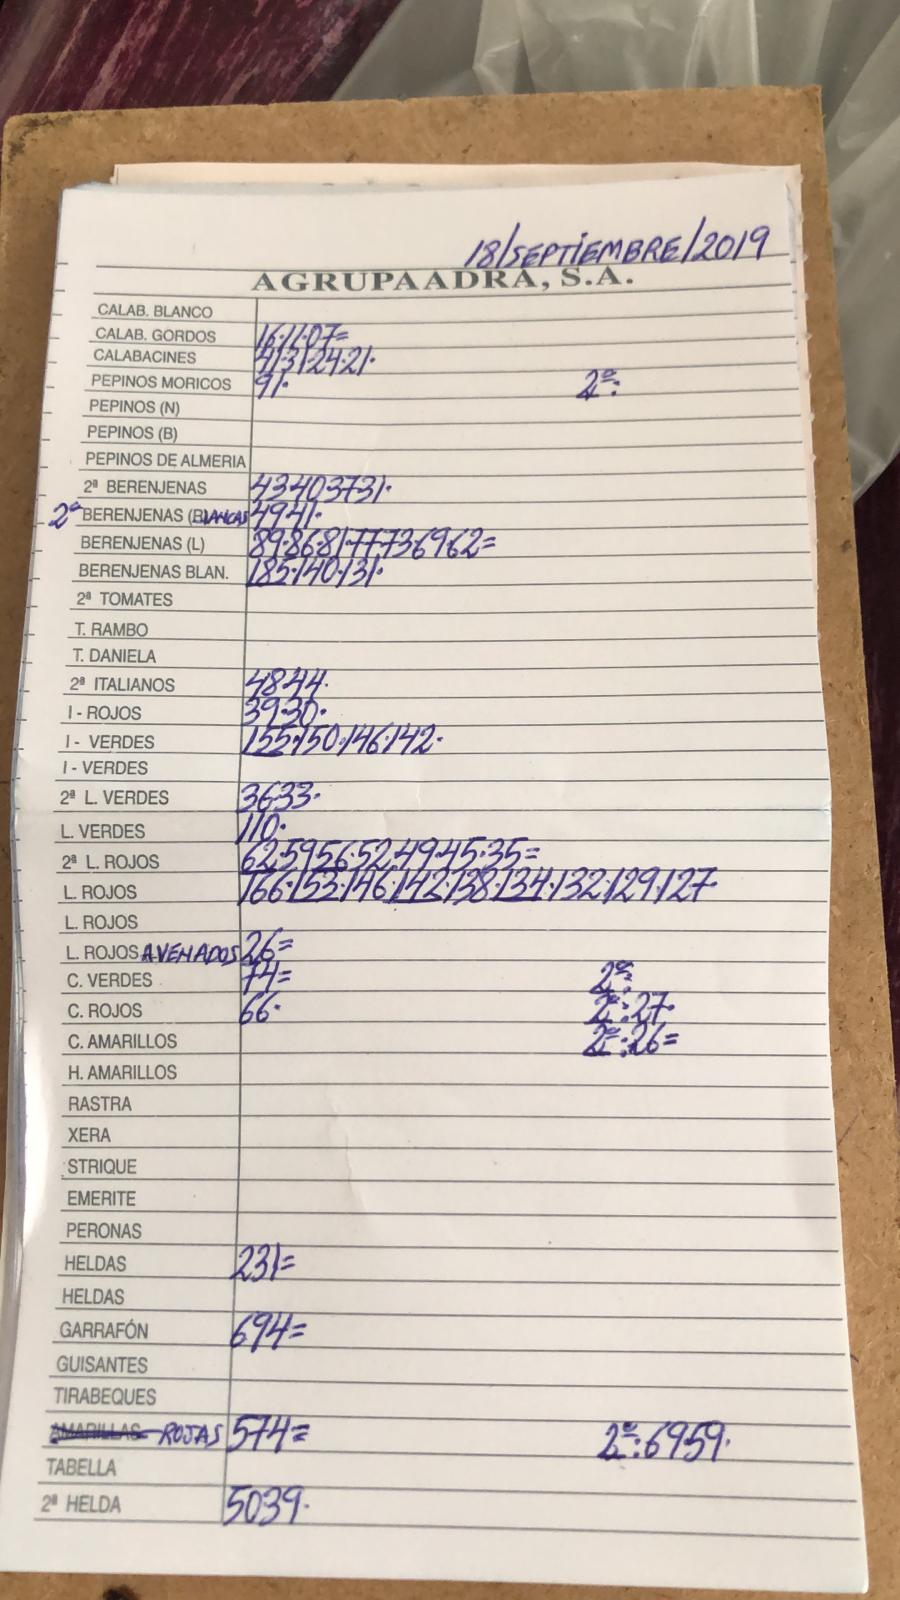 18/SEPTIEMBRE/2019
AGRUPAADRA, S.A.
CALAB. BLANCO
CALAB. GORDOS 16·11·07=
CALABACINES 41·31·24·21·
PEPINOS MORICOS 91· 2ª:
PEPINOS (N)
PEPINOS (B)
PEPINOS DE ALMERIA
2ª BERENJENAS 43·40·37·31·
2ª BERENJENAS (BLANCAS 49·41·
BERENJENAS (L) 89·86·81·77·73·69·62=
BERENJENAS BLAN. 185·140·131·
2ª TOMATES
T. RAMBO
T. DANIELA
2ª ITALIANOS 48·44·
I - ROJOS 39·30·
I - VERDES 155·150·146·142·
I - VERDES
2ª L. VERDES 36·33·
L. VERDES 110·
2ª L. ROJOS 62·59·56·52·49·45·35=
L. ROJOS 166·153·146·142·138·134·132·129·127·
L. ROJOS
L. ROJOS AVENADOS 26=
C. VERDES 74= 2ª:
C. ROJOS 66· 2ª:27·
C. AMARILLOS 2ª:26=
H. AMARILLOS
RASTRA
XERA
STRIQUE
EMERITE
PERONAS
HELDAS 231=
HELDAS
GARRAFÓN 694=
GUISANTES
TIRABEQUES
AMARILLAS ROJAS 574= 2ª:69·59·
TABELLA
2ª HELDA 50·39·